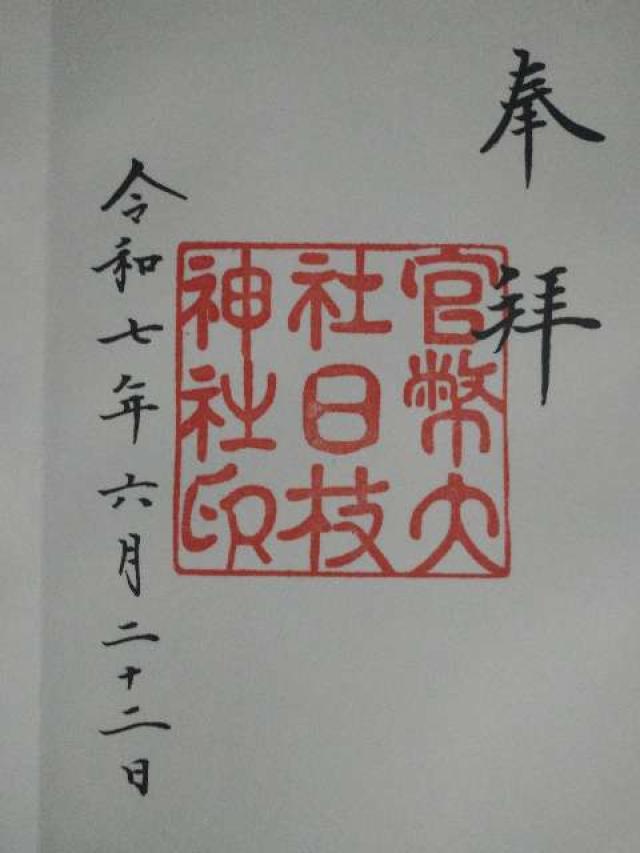 奉拜
官幣大
社日枝
神社印
令和七年六月二十二日